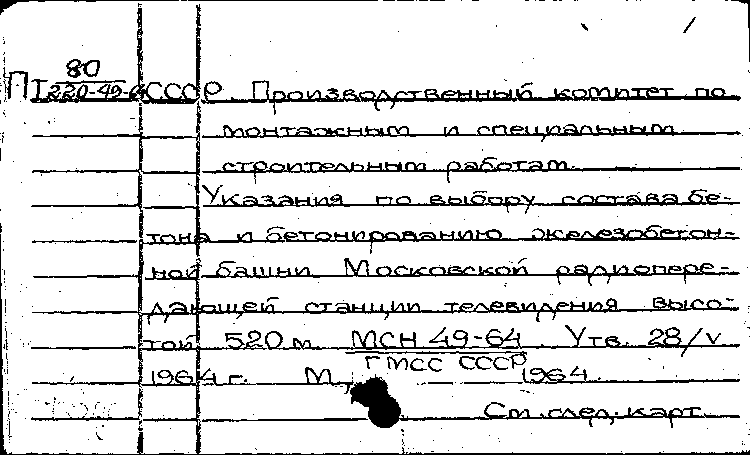 80
ПI 220-49-64 СССР. Производственный комитет по
монтажным и специальным
строительным работам.
Указания по выбору состава бе-
тона и бетонированию железобетон-
ной башни Московской радиопере-
дающей станции телевидения высо-
той 520 м. МСН 49-64. Утв. 28/V
ГМСС СССР
1964 г. М., 1964.
См. след. карт.